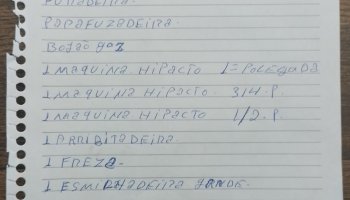 FURADEIRA.
PARAFUZADEIRA.
BOJÃO gaz
1 MAQUINA HiPACIO 1= POLEGADA
1 MAQUINA HiPACTO. 3/4.P.
1 MAQUINA HiPACTO 1/2.P.
1 ARRIBITADEIRA.
1 FREZA.
1 ESMIRHADEIRA GRANDE.